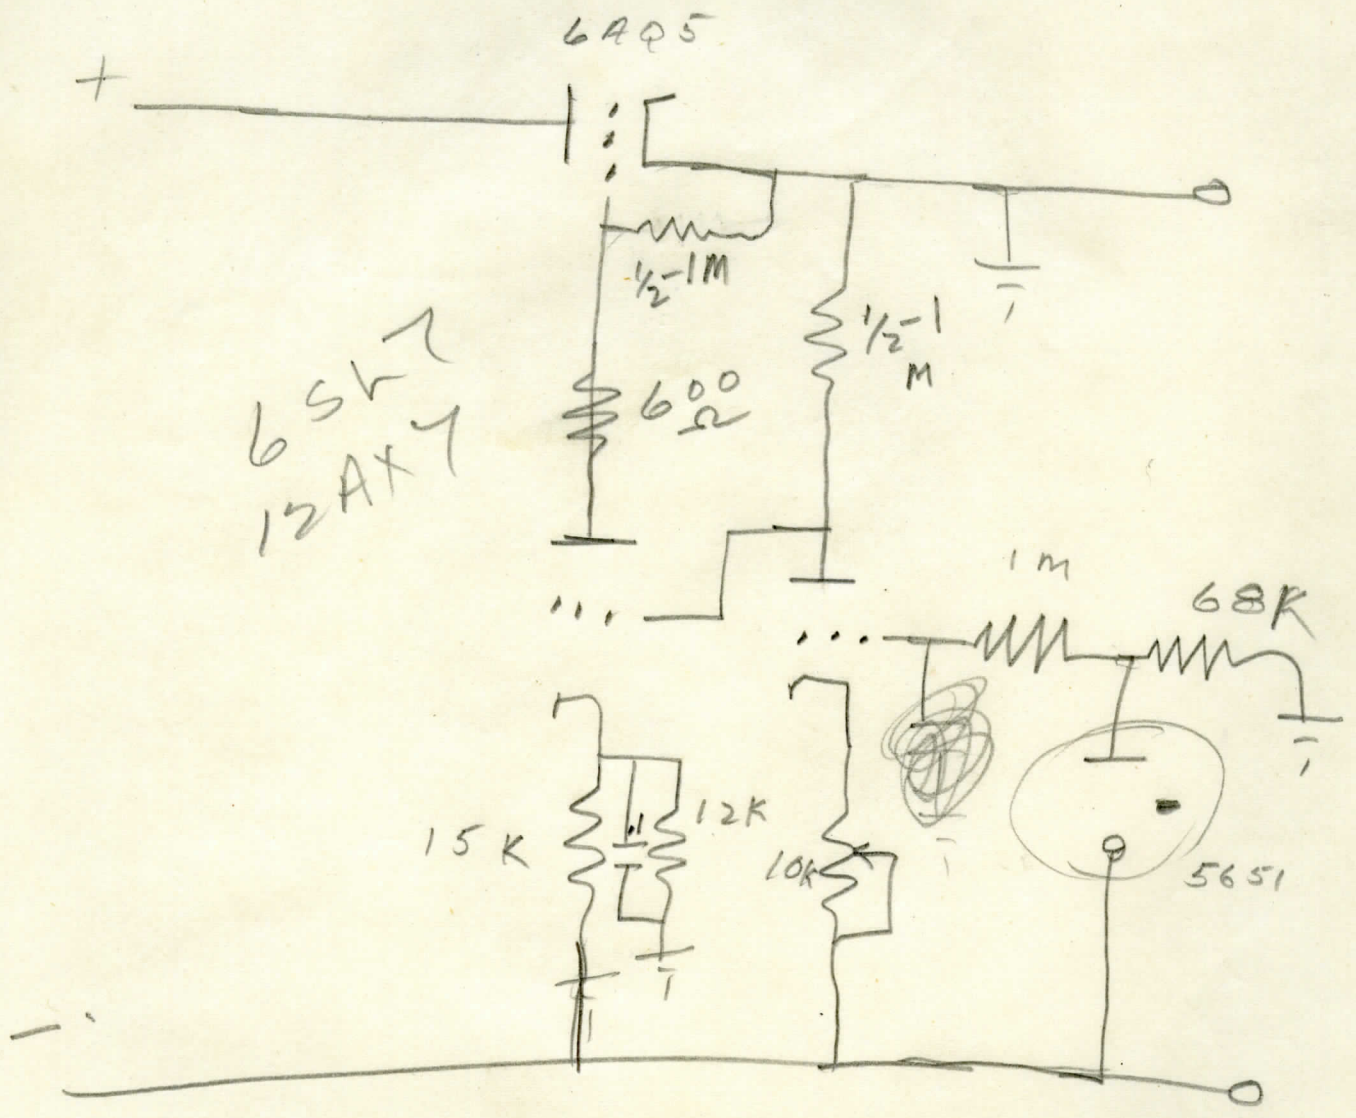 6AQ5
+
½-1M
½-1
M
600
Ω
6SL7
12AX7
1M
68K
15K
.1
12K
10K
5651
-
-